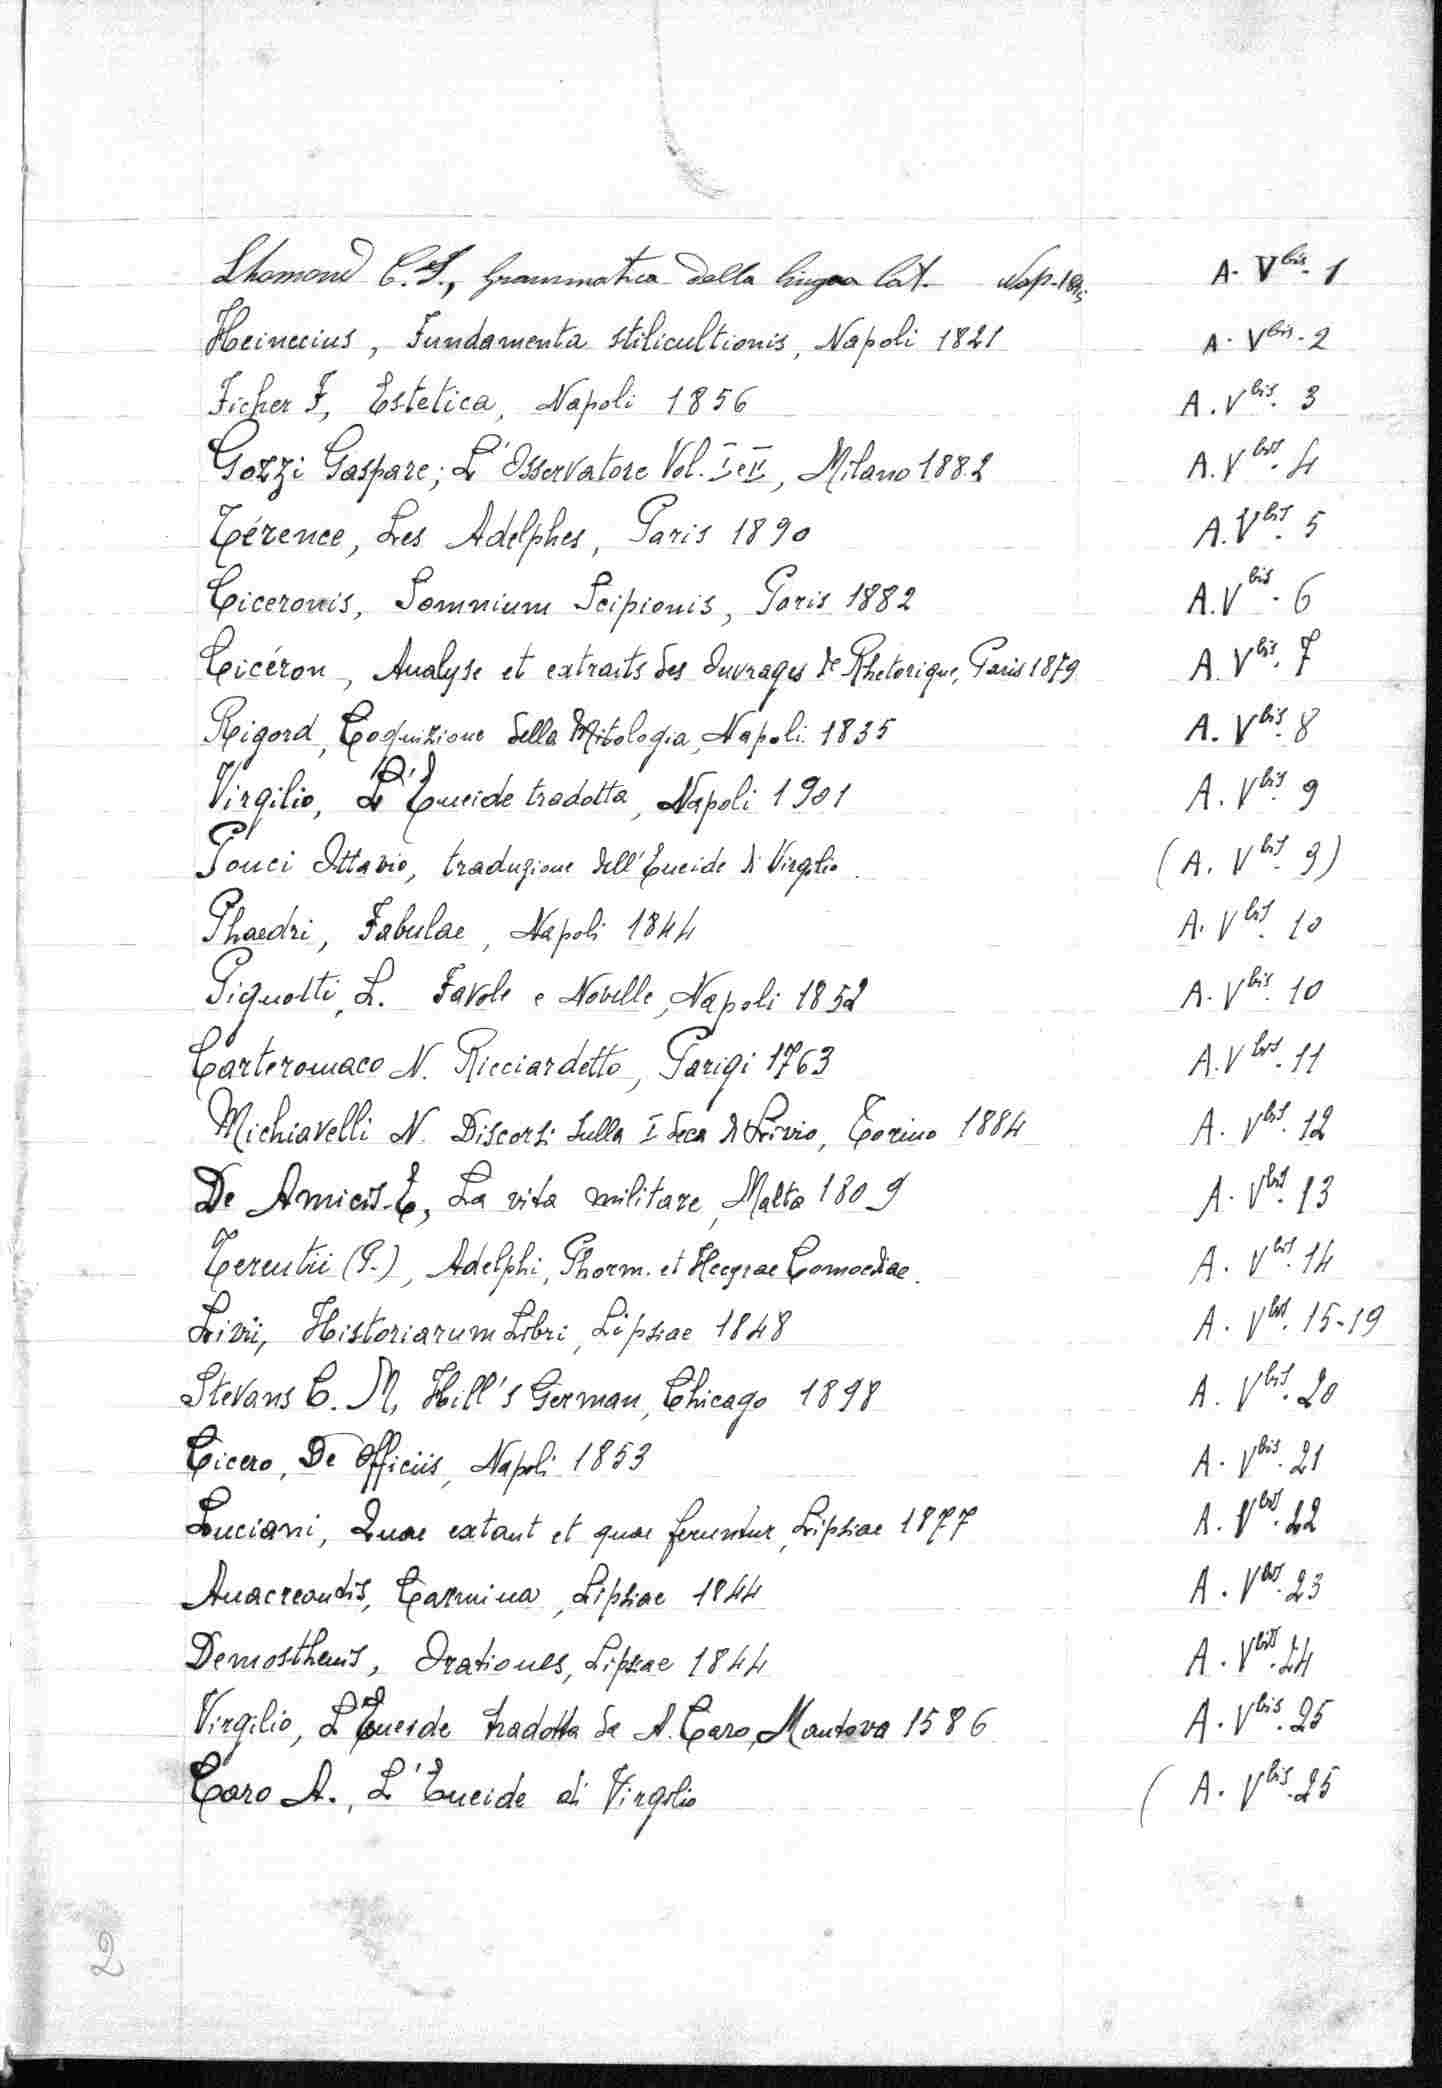 Lhomond C. F., Grammatica della lingua lat. Nap. A. V bis. 1
Heinecius, Fundamenta stilicultionis, Napoli 1821 A. V bis. 2
Ficher F, Estetica, Napoli 1856 A. V bis. 3
Gozzi Gaspare; L'Osservatore Vol. I e II, Milano 1882 A. V bis. 4
Térence, Les Adelphes, Paris 1890 A. V bis. 5
Ciceronis, Somnium Scipionis, Paris 1882 A. V bis. 6
Cicéron, Analyse et extraits des Ouvrages de Rhetorique, Paris 1879 A. V bis. 7
Rigord, Cognizione della Mitologia, Napoli 1835 A. V bis. 8
Virgilio, L'Eneide tradotta, Napoli 1901 A. V bis. 9
Ponci Ottavio, traduzione dell'Eneide di Virgilio. (A. V bis. 9)
Phaedri, Fabulae, Napoli 1844 A. V bis. 10
Pignotti, L. Favole e Novelle, Napoli 1852 A. V bis. 10
Carteromaco N. Ricciardetto, Parigi 1763 A. V bis. 11
Michiavelli N. Discorsi sulla I deca di Livio, Torino 1884 A. V bis. 12
De Amicis E, La vita militare, Malta 1809 A. V bis. 13
Terentii (P.), Adelphi, Phorm. et Hecyrae Comoediae. A. V bis. 14
Livii, Historiarum Libri, Lipsiae 1848 A. V bis. 15-19
Stevans C. M, Hill's German, Chicago 1898 A. V bis. 20
Cicero, De Officiis, Napoli 1853 A. V bis. 21
Luciani, Quae extant et quae feruntur, Lipsiae 1877 A. V bis. 22
Anacreontis, Carmina, Lipsiae 1844 A. V bis. 23
Demosthenis, Orationes, Lipsiae 1844 A. V bis. 24
Virgilio, L'Eneide tradotta da A. Caro, Mantova 1586 A. V bis. 25
Caro A., L'Eneide di Virgilio (A. V bis. 25
2